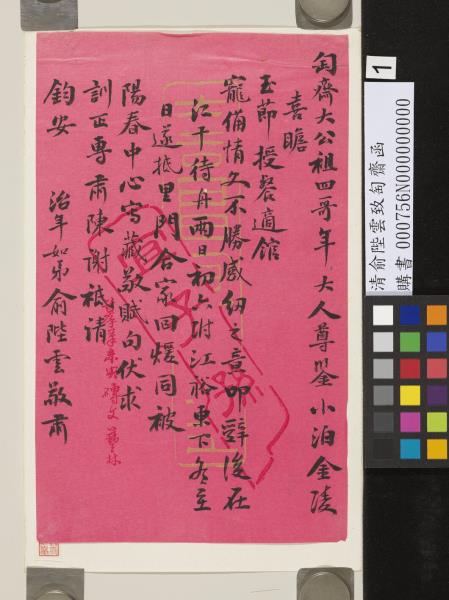 匋齋大公祖四哥年大人尊鑒小泊金陵
喜瞻
玉節授餐適館
寵侑情文不勝感紉之意叩辭後在
江干待舟兩日初六附江裕東下冬至
日遂抵里門合家回煖同被
陽春中心寫藏敬賦白伏求
訓正專肅陳謝祗請
鈞安 治年如弟俞陛雲敬肅
1
清俞陛雲致匋齋函
購書 000756N000000000